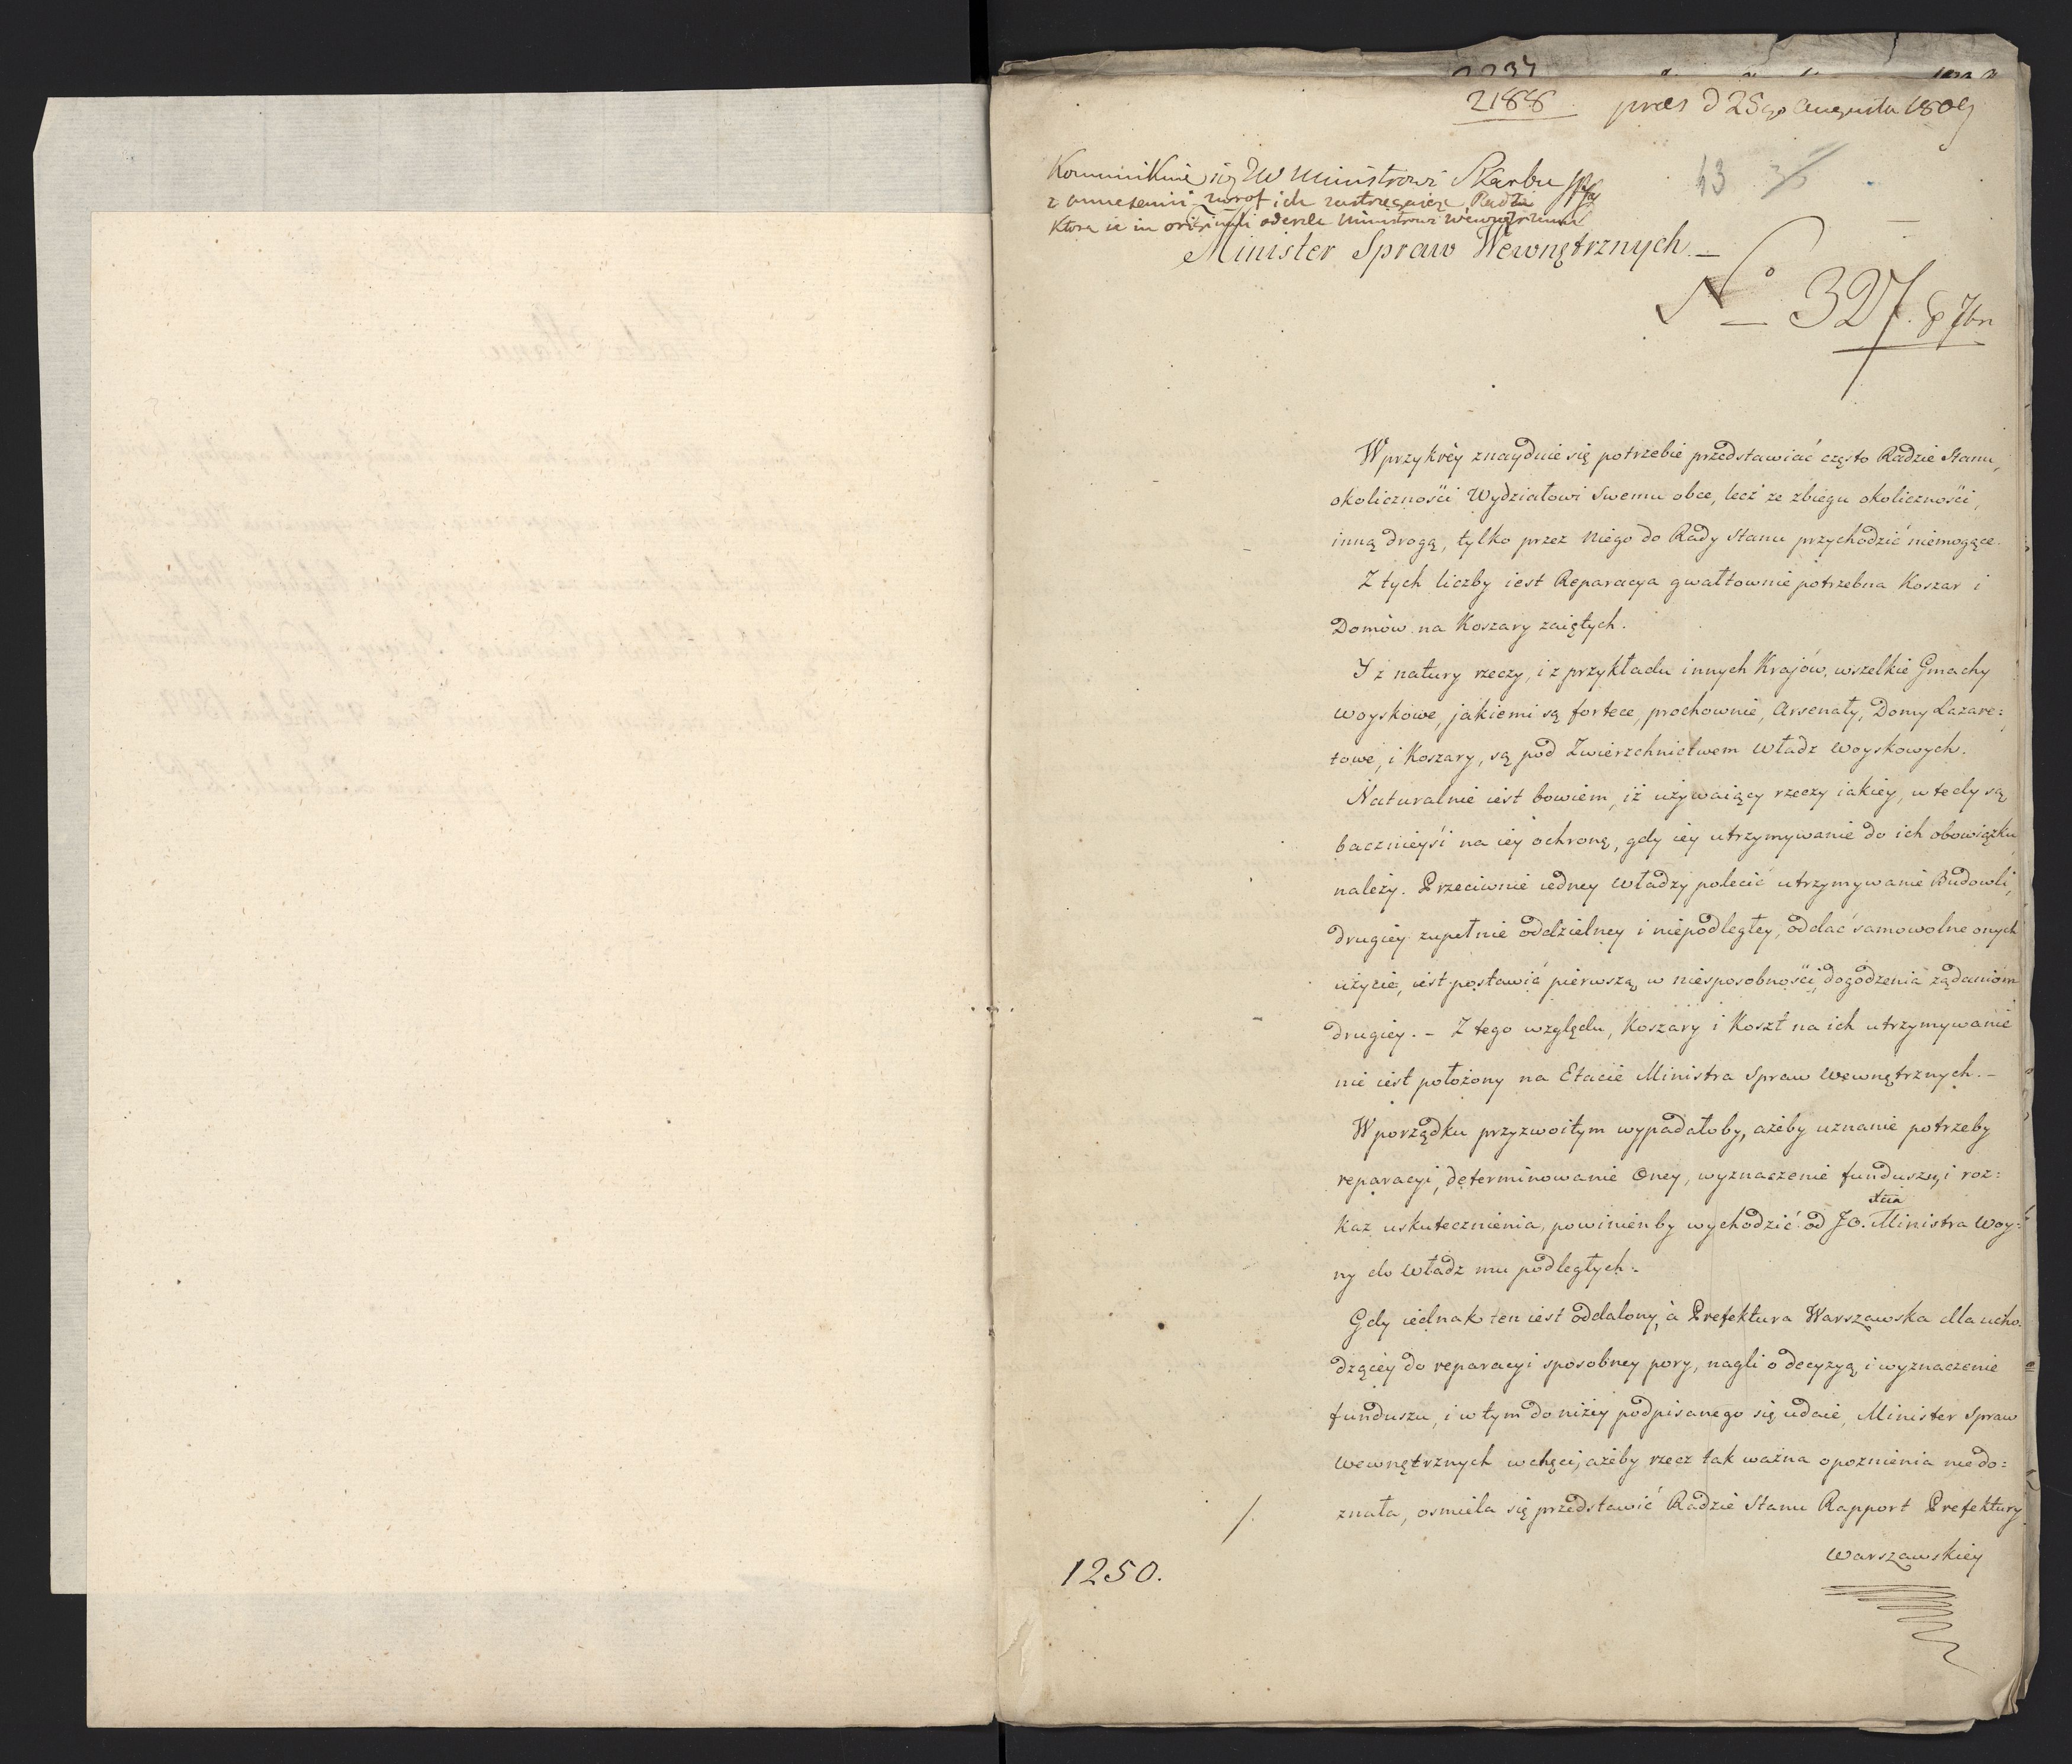 2188 pres d 25go Augusta 1809
43 35
Kommunikuie się JW Ministrowi Skarbu
z annexami zwrot ich zastrzegaiąc Radzie
Ktora ie in originali odeszle Ministrowi Wewnętrznemu
Minister Spraw Wewnętrznych. –
No 327. 7br
W przykrey znayduie się potrzebie przedstawiać często Radzie Stanu,
okoliczności Wydziałowi Swemu obce, lecz ze zbiegu okoliczności,
inną drogą, tylko przez Niego do Rady Stanu przychodzić niemogące.
Z tych liczby iest Reparacya gwałtownie potrzebna Koszar i
Domów na Koszary zaiętych.
I z natury rzeczy, i z przykładu innych Krajów, wszelkie Gmachy
Woyskowe, jakiemi są fortece, prochownie, Arsenały, Domy Lazare:
towe, i Koszary, są pod Zwierzchnictwem Władz Woyskowych.
Naturalnie iest bowiem, iż używaiący rzeczy iakiey, wtedy są
bacznieyśi na iey ochronę, gdy iey utrzymywanie do ich obowiązku
należy. Przeciwnie iedney Władzy polecić utrzymywanie Budowli,
drugiey zupełnie oddzielney i niepodległey, oddać samowolne onych
użycie, iest postawić pierwszą w niesposobności dogodzenia żądaniom
drugiey. – Z tego względu, Koszary i Koszt na ich utrzymywanie
nie iest położony na Etacie Ministra Spraw Wewnętrznych. –
W porządku przyzwoitym wypadałoby, ażeby uznanie potrzeby
reparacyi, determinowanie Oney, wyznaczenie funduszu, i roz:
kaz uskutecznienia, powinienby wychodzić od JO. Xcia Ministra Woy:
ny do Władz mu podległych.
Gdy iednak ten iest oddalony, a Prefektura Warszawska dla ucho:
dzącey do reparacyi sposobney pory, nagli o decyzyą i wyznaczenie
funduszu, i w tym do niżey podpisanego się udaie, Minister Spraw
Wewnętrznych w chęci, ażeby rzecz tak ważna opoznienia niedo:
znała, osmiela się przedstawić Radzie Stanu Rapport Prefektury
Warszawskiey
1250.